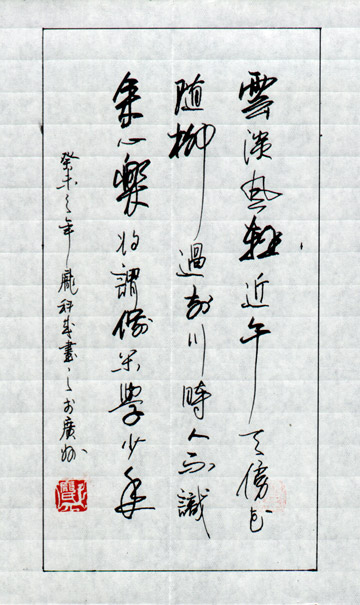 雲淡風輕近午天傍花
随柳過前川時人不識
余心樂将謂偷閑學少年
癸未之年龐科武書之於廣州